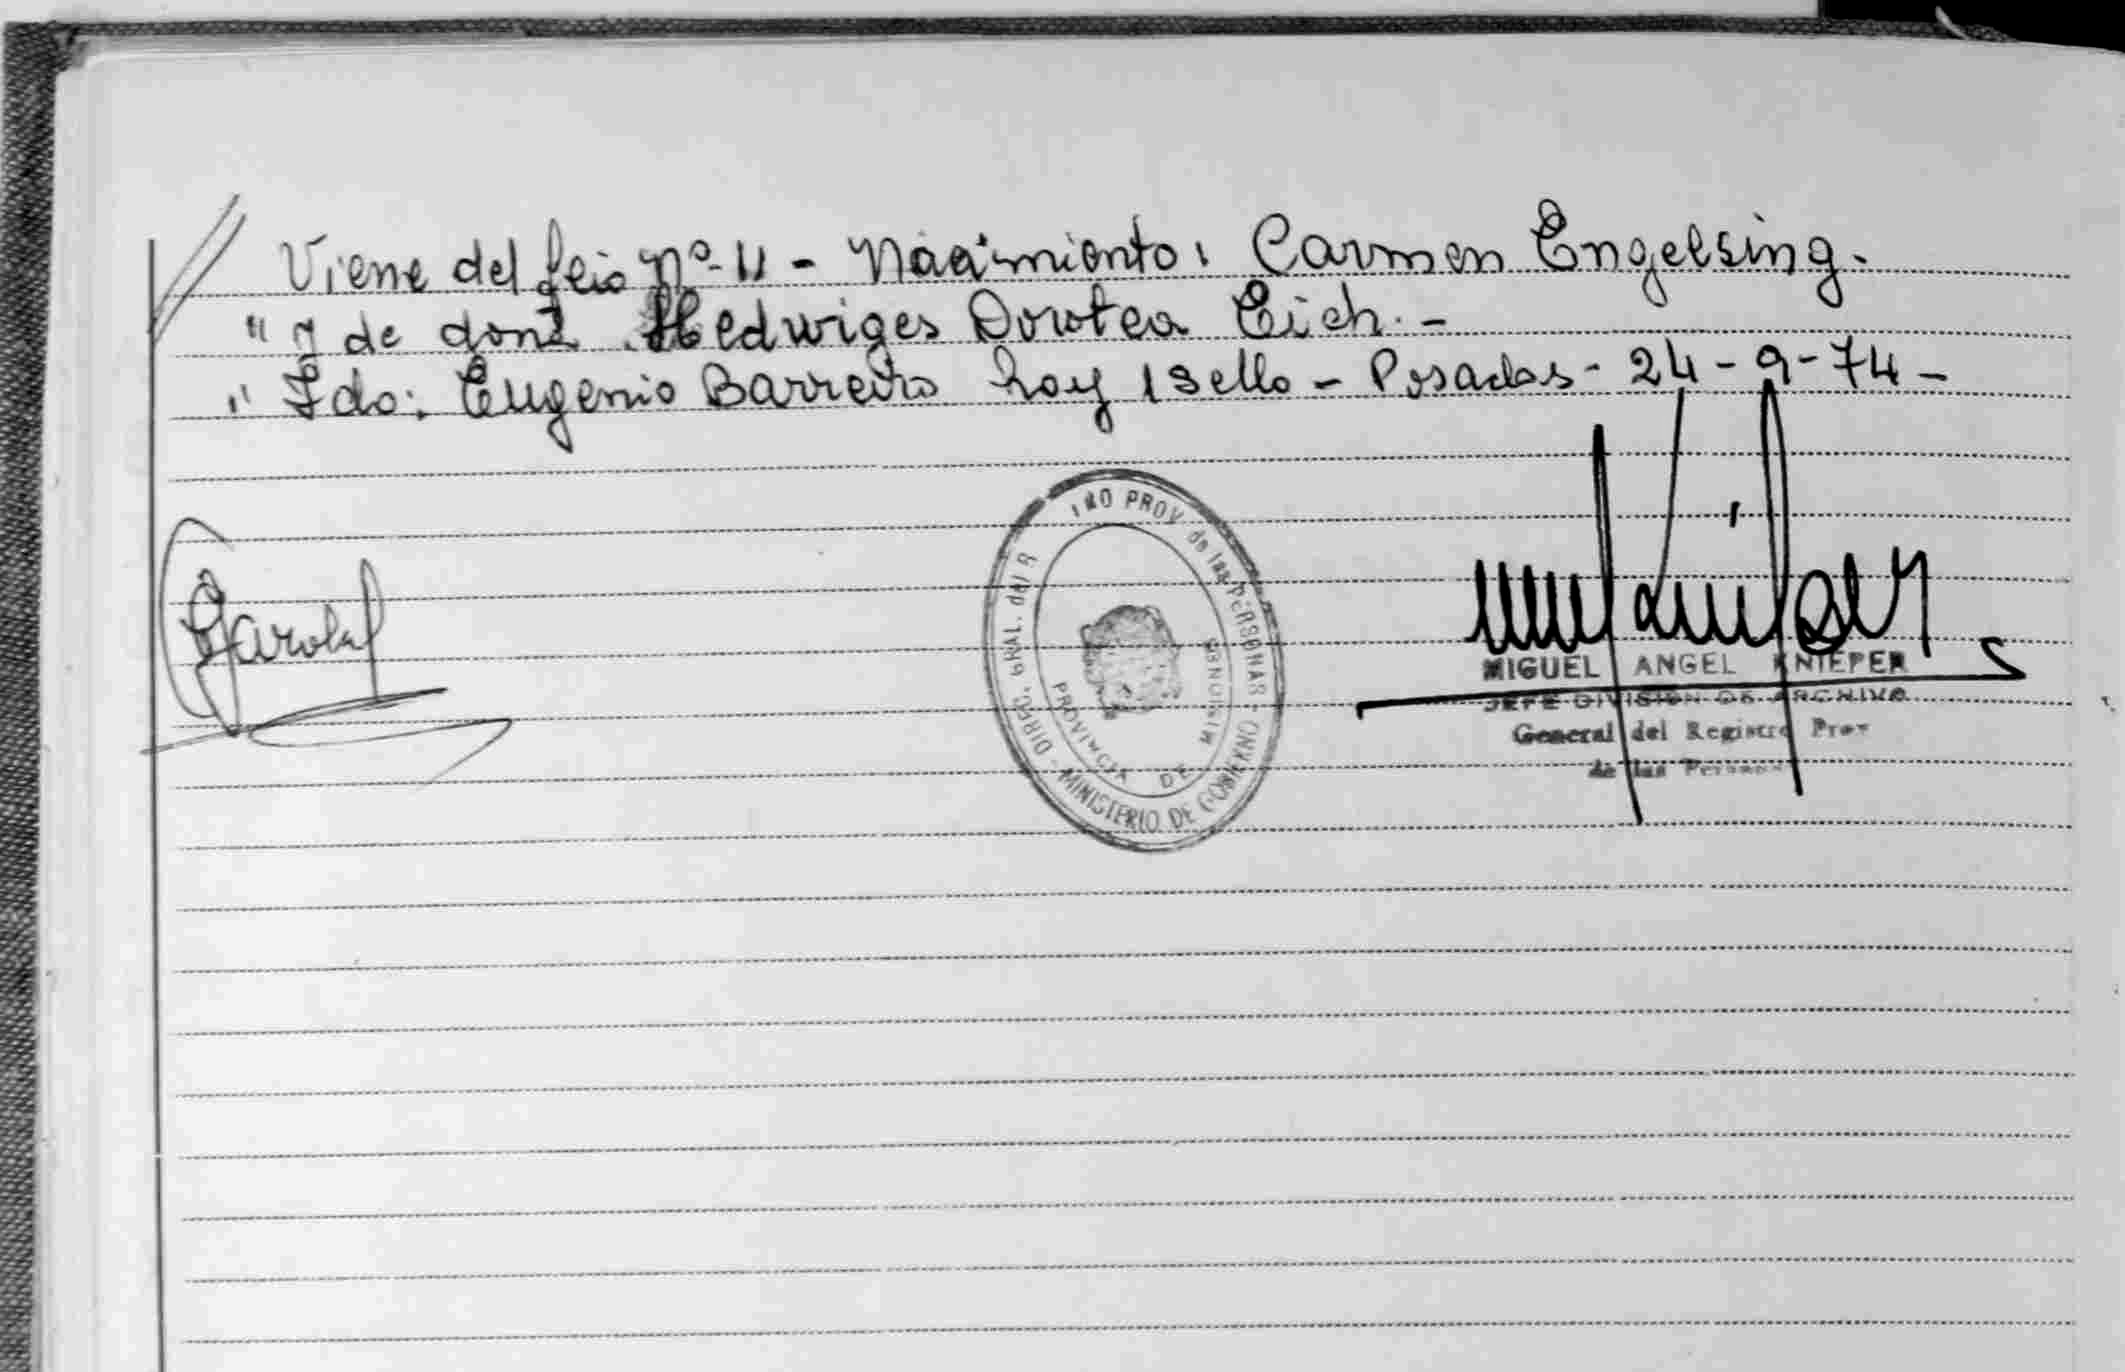 Viene del feio Nº 11 - Nacimiento: Carmen Engelsing.
" y de doña Hedwiges Dorotea Eich. -
" Fdo: Eugenio Barreiro hay 1 sello - Posadas - 24 - 9 - 74 -
DIREC. GRAL. del R INO PROV. de las PERSONAS - MINISTERIO DE GOBIERNO -
PROVINCIA DE MISIONES
MIGUEL ANGEL KNIEPER
JEFE DIVISION DE ARCHIVO
General del Registro Prov
de las Personas